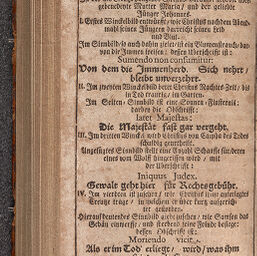 gebenedeyte Mutter Maria/ und der geliebte
Jünger Johannes.
I. Erstes Winckelbild entwürfft/ wie Christus nach dem Abend-
mahl seinen Jüngern darreicht seinen Leib
und Blut.
Im Sinnbild/ so auch dahin zielet/ ist ein Blumenstrauch/ dar-
von die Immen speisen/ dessen Uberschrifft ist:
Sumendo non consumitur:
Von dem die Immenherd. Sich nehrt/
bleibt unverzehrt.
II. Im zweyten Winckelbild betet Christus Nachts-Zeit/ bis
in Tod traurig/ im Garten.
Im Seiten-Sinnbild ist eine Sonnen-Finsterniß/
darbey die Obschrifft:
latet Majestas:
Die Majestät fast gar vergeht.
III. Im dritten Winckel wird Christus von Caipha des Todes
schuldig geurtheilt.
Angefügtes Sinnbild stellt eine Anzahl Schaaffe für deren
eines vom Wolff hingerissen wird/ mit
der Uberschrifft ist:
Iniquus Judex.
Gewalt geht hier für Rechtsgebühr.
IV. Im vierdten ist zusehen/ wie Christus
Creutz trage/ in welchem er über kurtz ausgerich-
tet
Hierauf deutendes Sinnbild giebt zusehen/ wie Samson das
Gebäu einwerffe/ und sterbend seine Feinde besiege:
dessen Obschrifft ist:
Moriendo vicit.
Als er im Tod erliegt/ wird/ was ihm